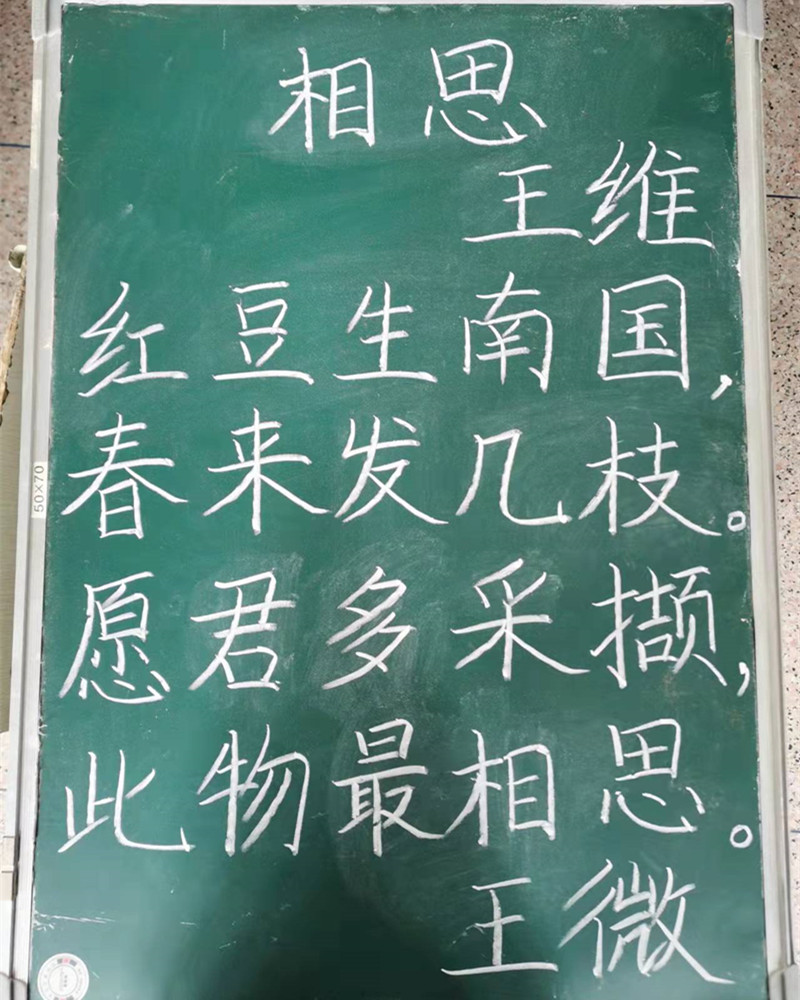 相思
王维
红豆生南国,
春来发几枝。
愿君多采撷,
此物最相思。
王微
50×70